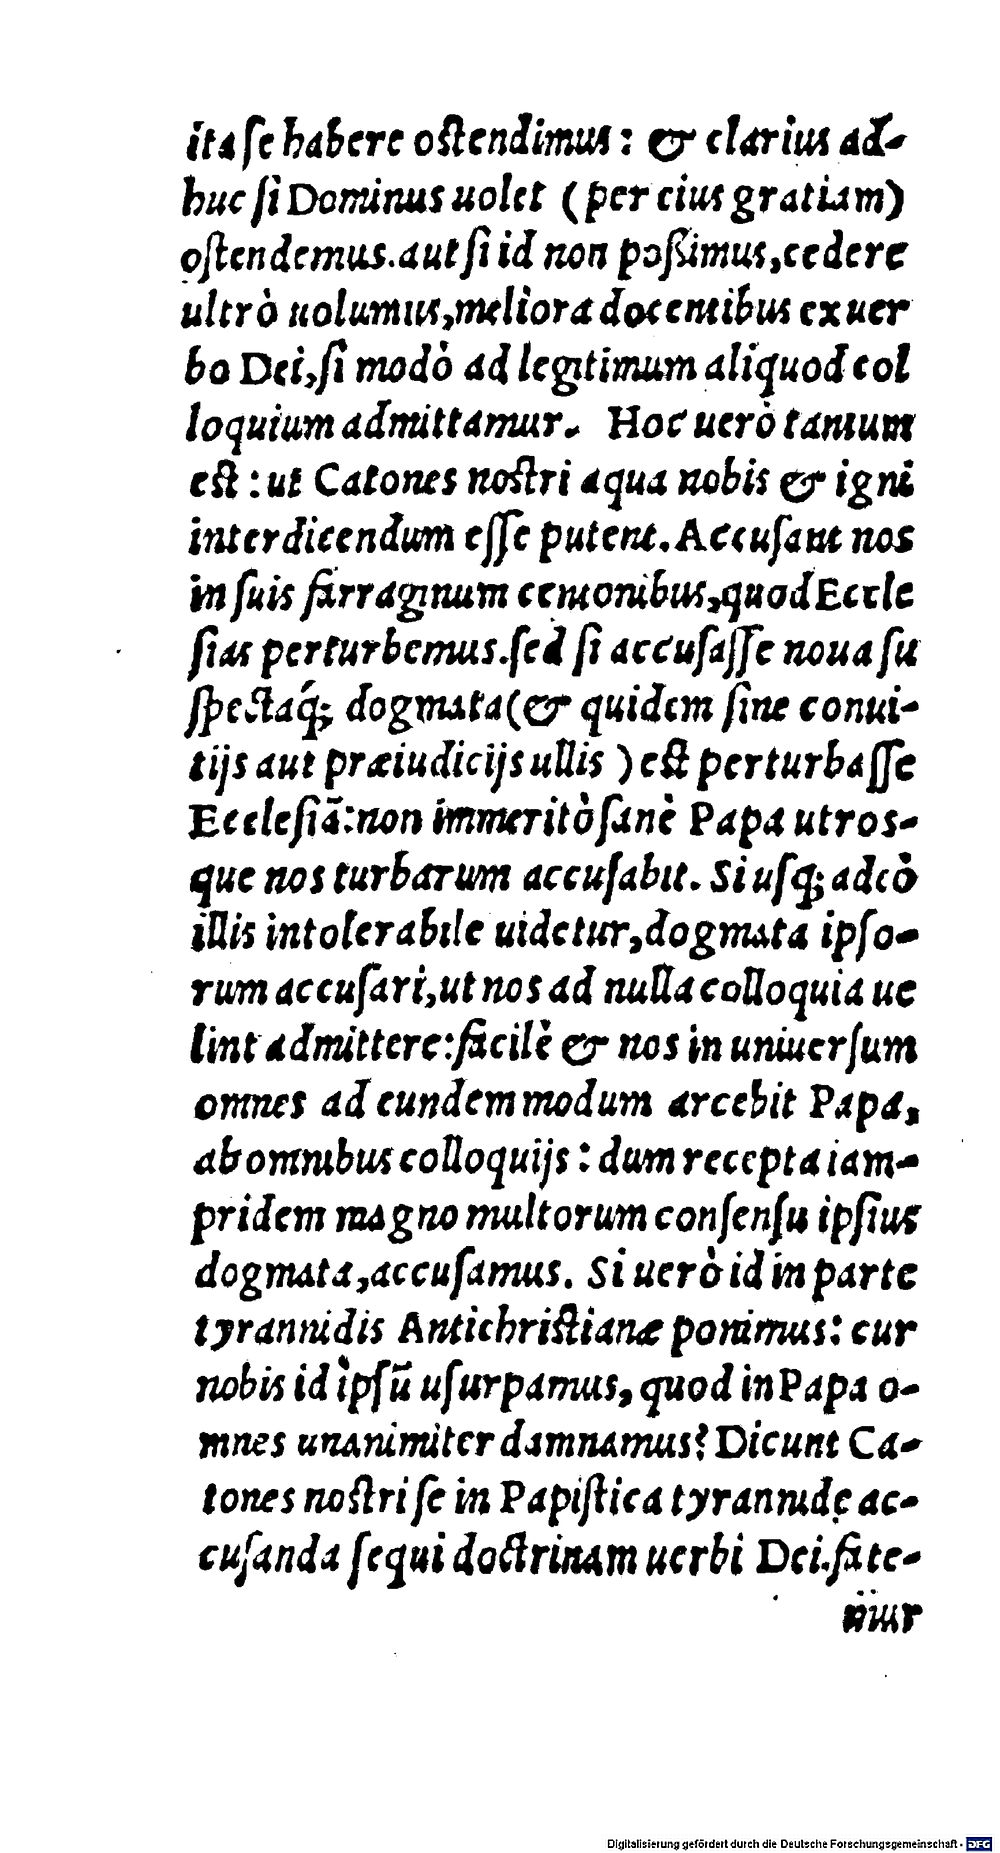 ita ſe habere oſtendimus: & clarius ad-
huc ſi Dominus uolet (per eius gratiam)
oſtendemus. aut ſi id non poſsimus, cedere
ultrò uolumus, meliora docentibus ex uer
bo Dei, ſi modò ad legitimum aliquod col
loquium admittamur. Hoc uerò tantum
eſt: ut Catones noſtri aqua nobis & igni
interdicendum eſſe putent. Accuſant nos
in ſuis farraginum centonibus, quod Eccle
ſias perturbemus. ſed ſi accuſaſſe noua ſu
ſpectaq́; dogmata (& quidem ſine conui-
tijs aut præiudicijs ullis) eſt perturbaſſe
Eccleſiā: non immeritò ſanè Papa utros-
que nos turbarum accuſabit. Si uſq; adeò
illis intolerabile uidetur, dogmata ipſo-
rum accuſari, ut nos ad nulla colloquia ue
lint admittere: facilè & nos in uniuerſum
omnes ad eundem modum arcebit Papa,
ab omnibus colloquijs: dum recepta iam-
pridem magno multorum conſenſu ipſius
dogmata, accuſamus. Si uerò id in parte
tyrannidis Antichriſtianæ ponimus: cur
nobis id ipſū uſurpamus, quod in Papa o-
mnes unanimiter damnamus? Dicunt Ca-
tones noſtri ſe in Papiſtica tyrannide ac-
cuſanda ſequi doctrinam uerbi Dei. fate-
Digitalisierung gefördert durch die Deutsche Forschungsgemeinschaft - DFG